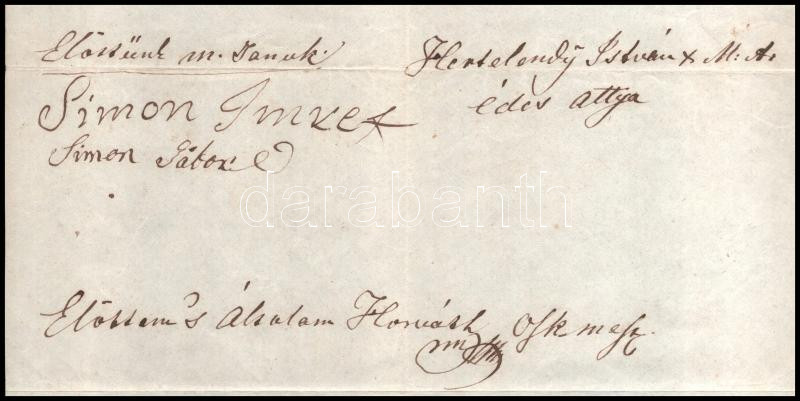 Előttünk m. Tanuk:
Simon Imre x
Simon Gábor
Hertelendÿ István x M: A:
édes attya
darabanth
Előttem 's Általam Horváth